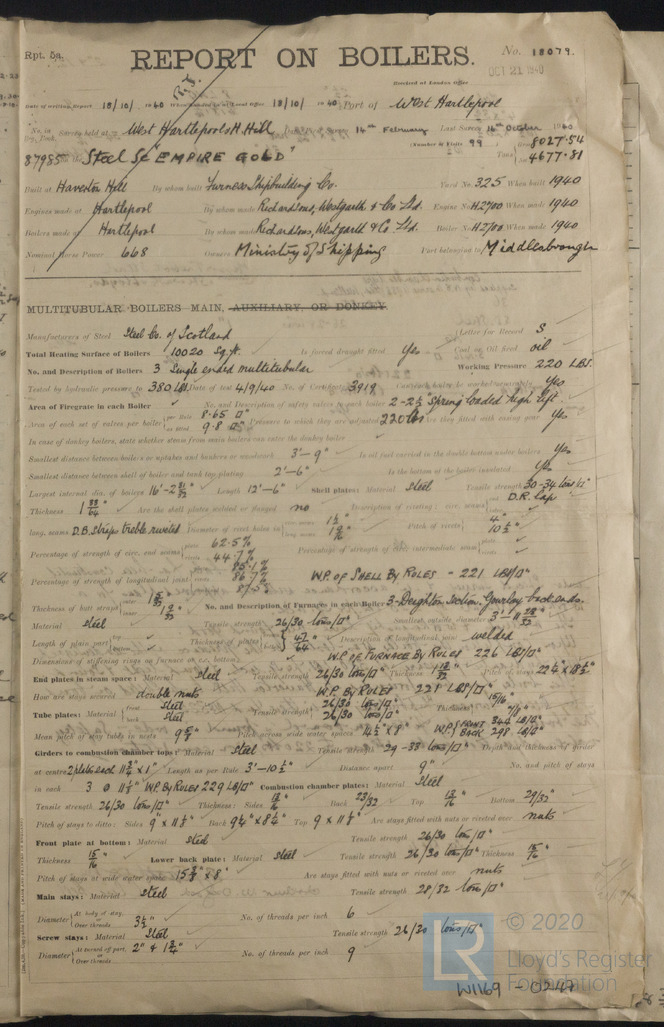 Rpt. 5a.
REPORT ON BOILERS.
No. 18079.
Received at London Office
OCT 21 1940
Date of writing Report 18/10/ 1940 When handed in at Local Office 18/10/ 1940 Port of West Hartlepool
No. in Survey held at West Hartlepool & H. Hill 14th February Last Survey 14th October 1940
Reg. Book.
(Number of Visits 99) Gross 8027.54
87985 on the Steel Sc "EMPIRE GOLD" Tons Net 4677.81
Built at Haverton Hill By whom built Furness Shipbuilding Co. Yard No. 325 When built 1940
Engines made at Hartlepool By whom made Richardsons, Westgarth & Co Ltd. Engine No. H2700 When made 1940
Boilers made at Hartlepool By whom made Richardsons, Westgarth & Co. Ltd. Boiler No. H2700 When made 1940
Nominal Horse Power 668 Owners Ministry of Shipping Port belonging to Middlesbrough
MULTITUBULAR BOILERS—MAIN, AUXILIARY, OR DONKEY.
Manufacturers of Steel Steel Co. of Scotland (Letter for Record S
Total Heating Surface of Boilers 10020 Sq. ft. Is forced draught fitted Yes Coal or Oil fired oil
No. and Description of Boilers 3 Single ended multitubular Working Pressure 220 LBS.
Tested by hydraulic pressure to 380 LBS Date of test 4/9/40 No. of Certificate 3919 Can each boiler be worked separately Yes
Area of Firegrate in each Boiler No. and Description of safety valves to each boiler 2-2½" Spring loaded high lift
Area of each set of valves per boiler per Rule 8.65 □" as fitted 9.8 □" Pressure to which they are adjusted 220 lbs Are they fitted with easing gear Yes
In case of donkey boilers, state whether steam from main boilers can enter the donkey boiler
Smallest distance between boilers or uptakes and bunkers or woodwork 3'-9" Is oil fuel carried in the double bottom under boilers Yes
Smallest distance between shell of boiler and tank top plating 2'-6" Is the bottom of the boiler insulated Yes
Largest internal dia. of boilers 16'-2 31/32" Length 12'-6" Shell plates: Material steel Tensile strength 30-34 tons/□"
Thickness Are the shell plates welded or flanged no Description of riveting: circ. seams D.R. Lap
long. seams D.B. Straps treble riveted Diameter of rivet holes in Pitch of rivets 4" 10½"
Percentage of strength of circ. end seams 62.5% 44.7% Percentage of strength of circ. intermediate seam
Percentage of strength of longitudinal joint 86.7% W.P. OF SHELL BY RULES - 221 LBS/□"
Thickness of butt straps No. and Description of Furnaces in each Boiler 3-Deighton Section, Gourlay back ends.
Material steel Tensile strength 26/30 tons/□" Smallest outside diameter
Length of plain part Thickness of plates 47/64" Description of longitudinal joint welded
Dimensions of stiffening rings on furnace or c.c. bottom W.P. OF FURNACE BY RULES 226 LBS/□"
End plates in steam space: Material steel Tensile strength 26/30 tons/□" Thickness Pitch of stays 22¼" x 18½"
How are stays secured double nuts W.P. BY RULES 221 LBS/□"
Tube plates: Material front steel back steel Tensile strength 26/30 tons/□" 26/30 tons/□" Thickness 15/16" 7/8"
Mean pitch of stay tubes in nests 9 5/8" Pitch across wide water spaces 14½" x 8" W.P. FRONT 344 LB/□" BACK 298 LB/□"
Girders to combustion chamber tops: Material steel Tensile strength 29-33 tons/□" Depth and thickness of girder
at centre 2 plates each 11¾" x 1" Length as per Rule 3'-10½" Distance apart 9" No. and pitch of stays
in each 3 @ 11½" W.P. BY RULES 229 LB/□" Combustion chamber plates: Material Steel
Tensile strength 26/30 tons/□" Thickness: Sides 13/16" Back 23/32 Top 13/16 Bottom 29/32"
Pitch of stays to ditto: Sides 9" x 11½" Back 9¼" x 8¼" Top 9 x 11½" Are stays fitted with nuts or riveted over nuts
Front plate at bottom: Material steel Tensile strength 26/30 tons/□"
Thickness 15/16" Lower back plate: Material steel Tensile strength 26/30 tons/□" Thickness 15/16"
Pitch of stays at wide water space 15⅜ x 8" Are stays fitted with nuts or riveted over nuts
Main stays: Material Steel Tensile strength 28/32 tons/□"
Diameter At body of stay, or Over threads 3½" No. of threads per inch 6
Screw stays: Material Steel Tensile strength 26/30 tons/□"
Diameter At turned off part, or Over threads 2" & 1¾" No. of threads per inch 9
© 2020
Lloyd's Register
Foundation
W1169 - 0247